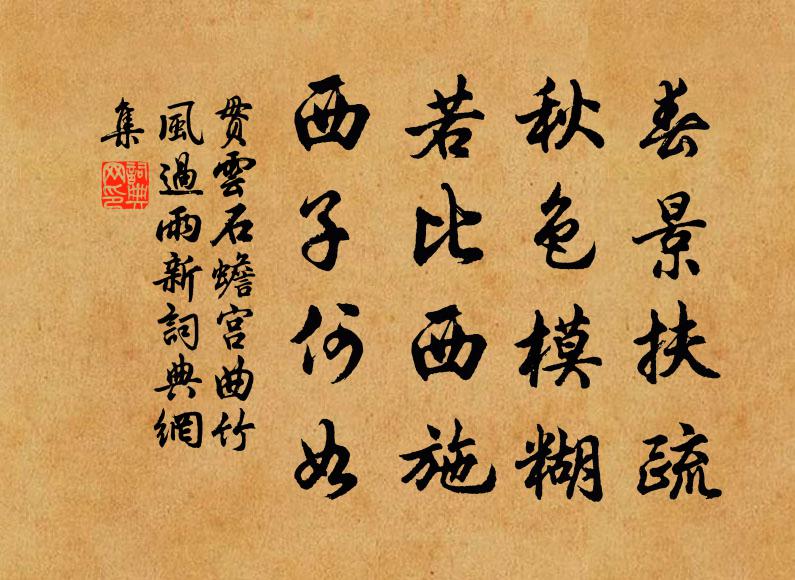 春景扶疏
秋色模糊
若比西施
西子何如
贯雲石蟾宫曲竹
風過雨新詞典網
集
詞典
网印